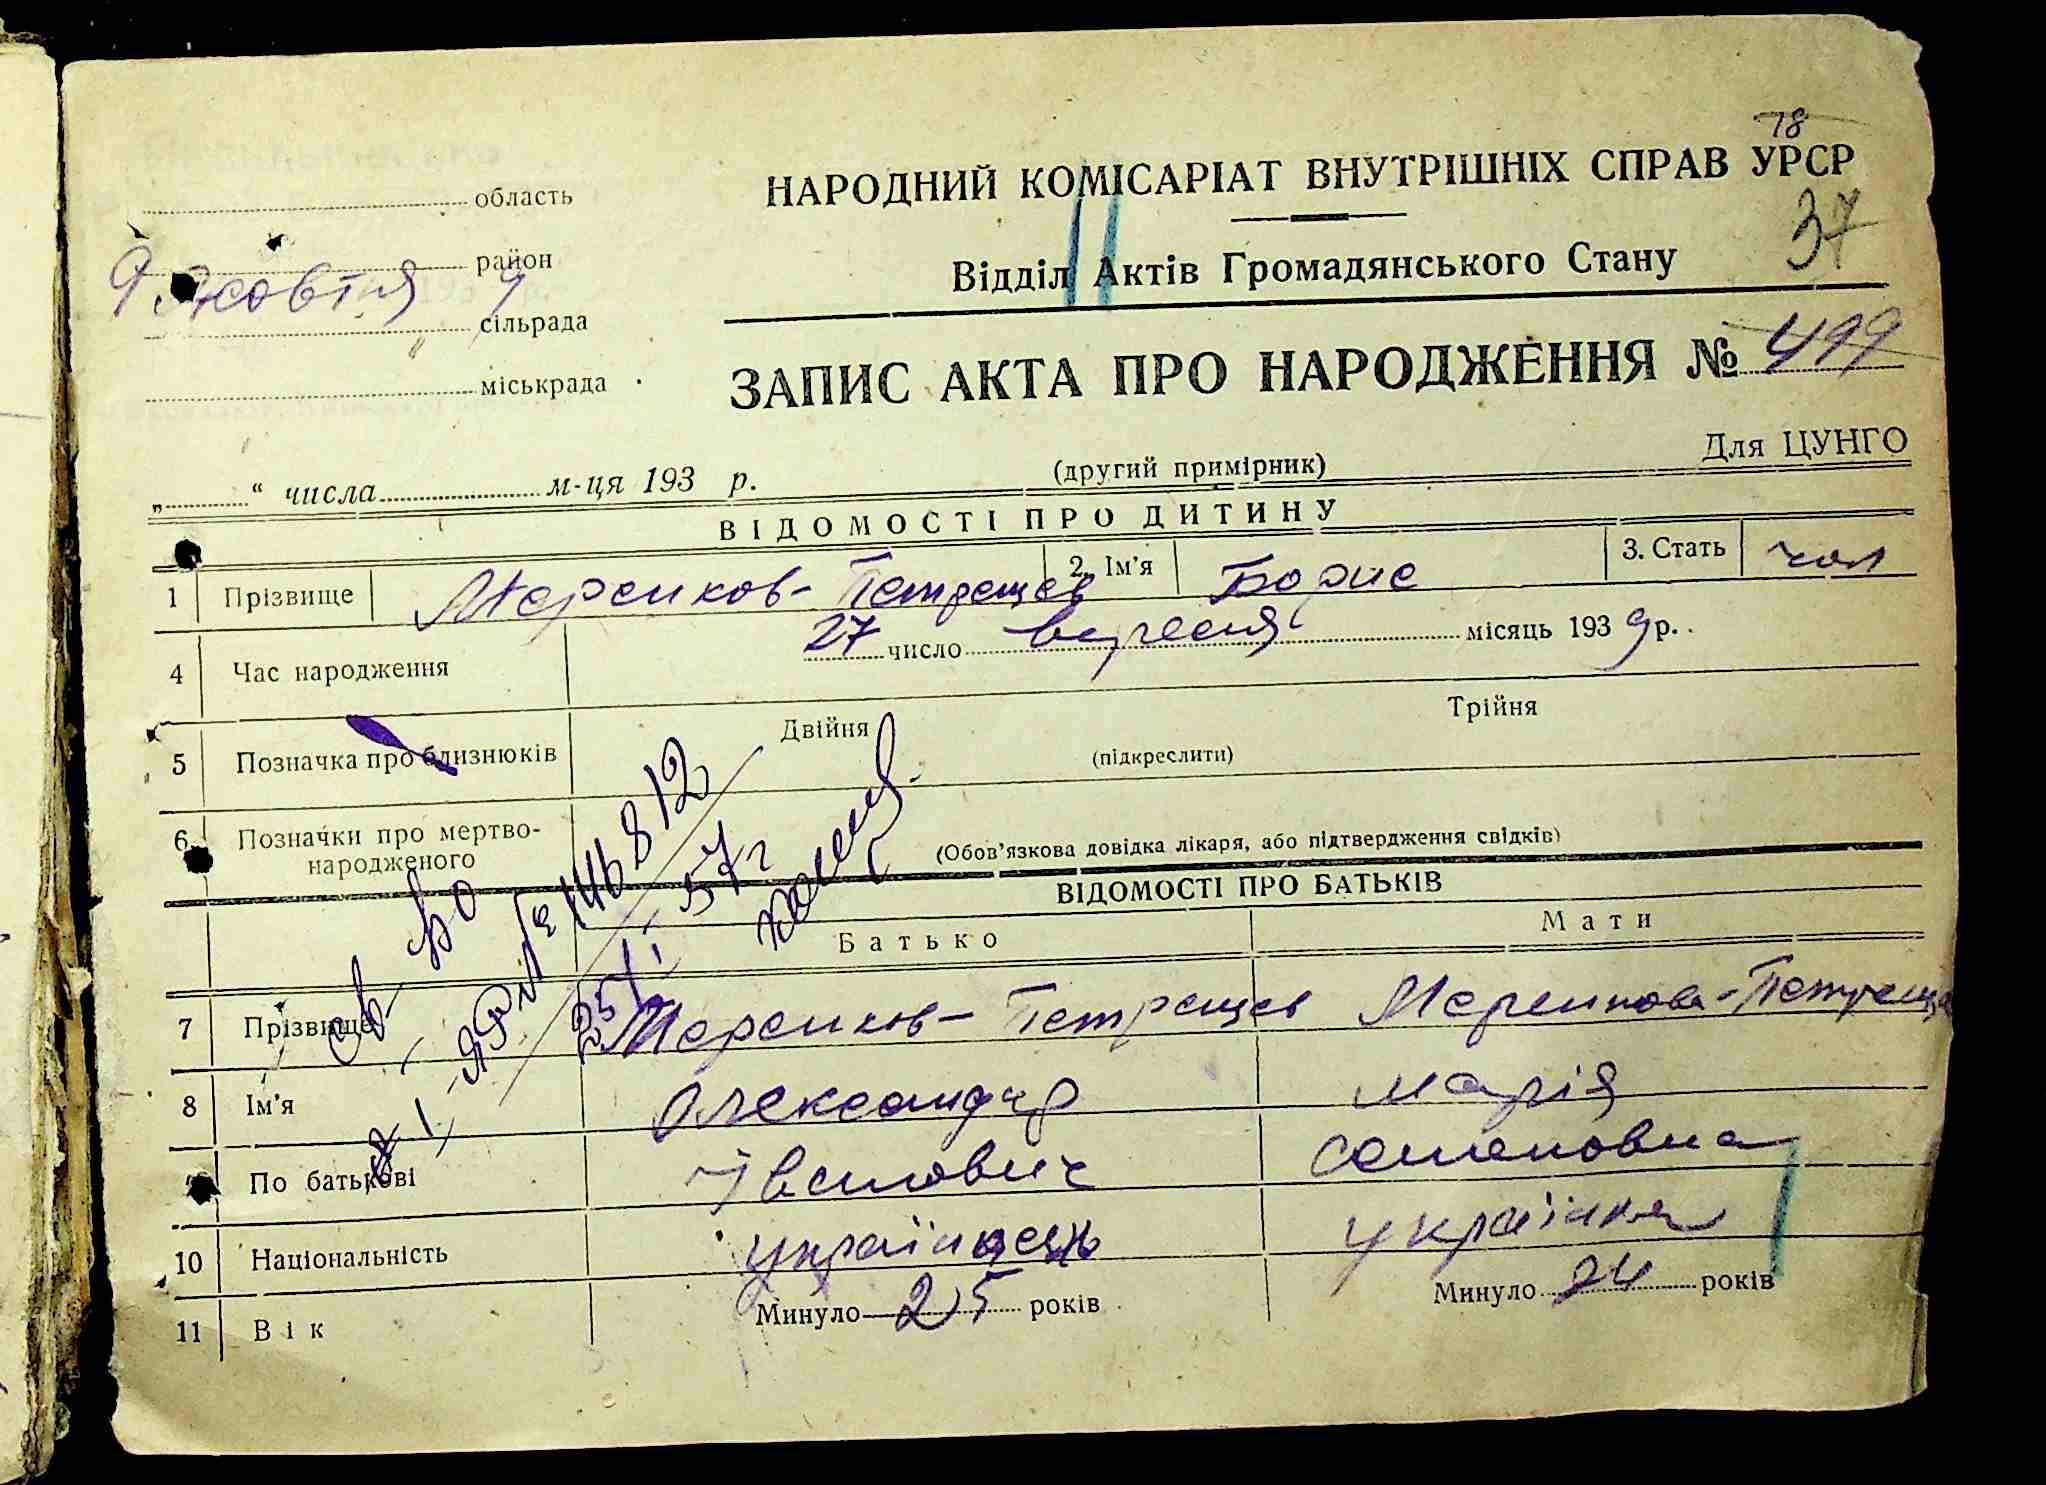 78
НАРОДНИЙ КОМІСАРІАТ ВНУТРІШНІХ СПРАВ УРСР
37
Відділ Актів Громадянського Стану
область
район
9 жовтня 9
сільрада
міськрада
ЗАПИС АКТА ПРО НАРОДЖЕННЯ № 499
„ “ числа м-ця 193 р.
(другий примірник)
Для ЦУНГО
ВІДОМОСТІ ПРО ДИТИНУ
1 Прізвище Меренков-Петрещев 2. Ім’я Борис 3. Стать чол
4 Час народження 27 число вересня місяць 1939 р.
5 Позначка про близнюків Двійня (підкреслити) Трійня
6. Позначки про мертво-
народженого (Обов’язкова довідка лікаря, або підтвердження свідків)
ВІДОМОСТІ ПРО БАТЬКІВ
Батько Мати
7 Прізвище Меренков-Петрещев Меренкова-Петрещева
8 Ім’я Олександр Марія
По батькові Іванович Семеновна
10 Національність українець українка
11 Вік Минуло 25 років Минуло 24 років
св во
146812
25/ 57г